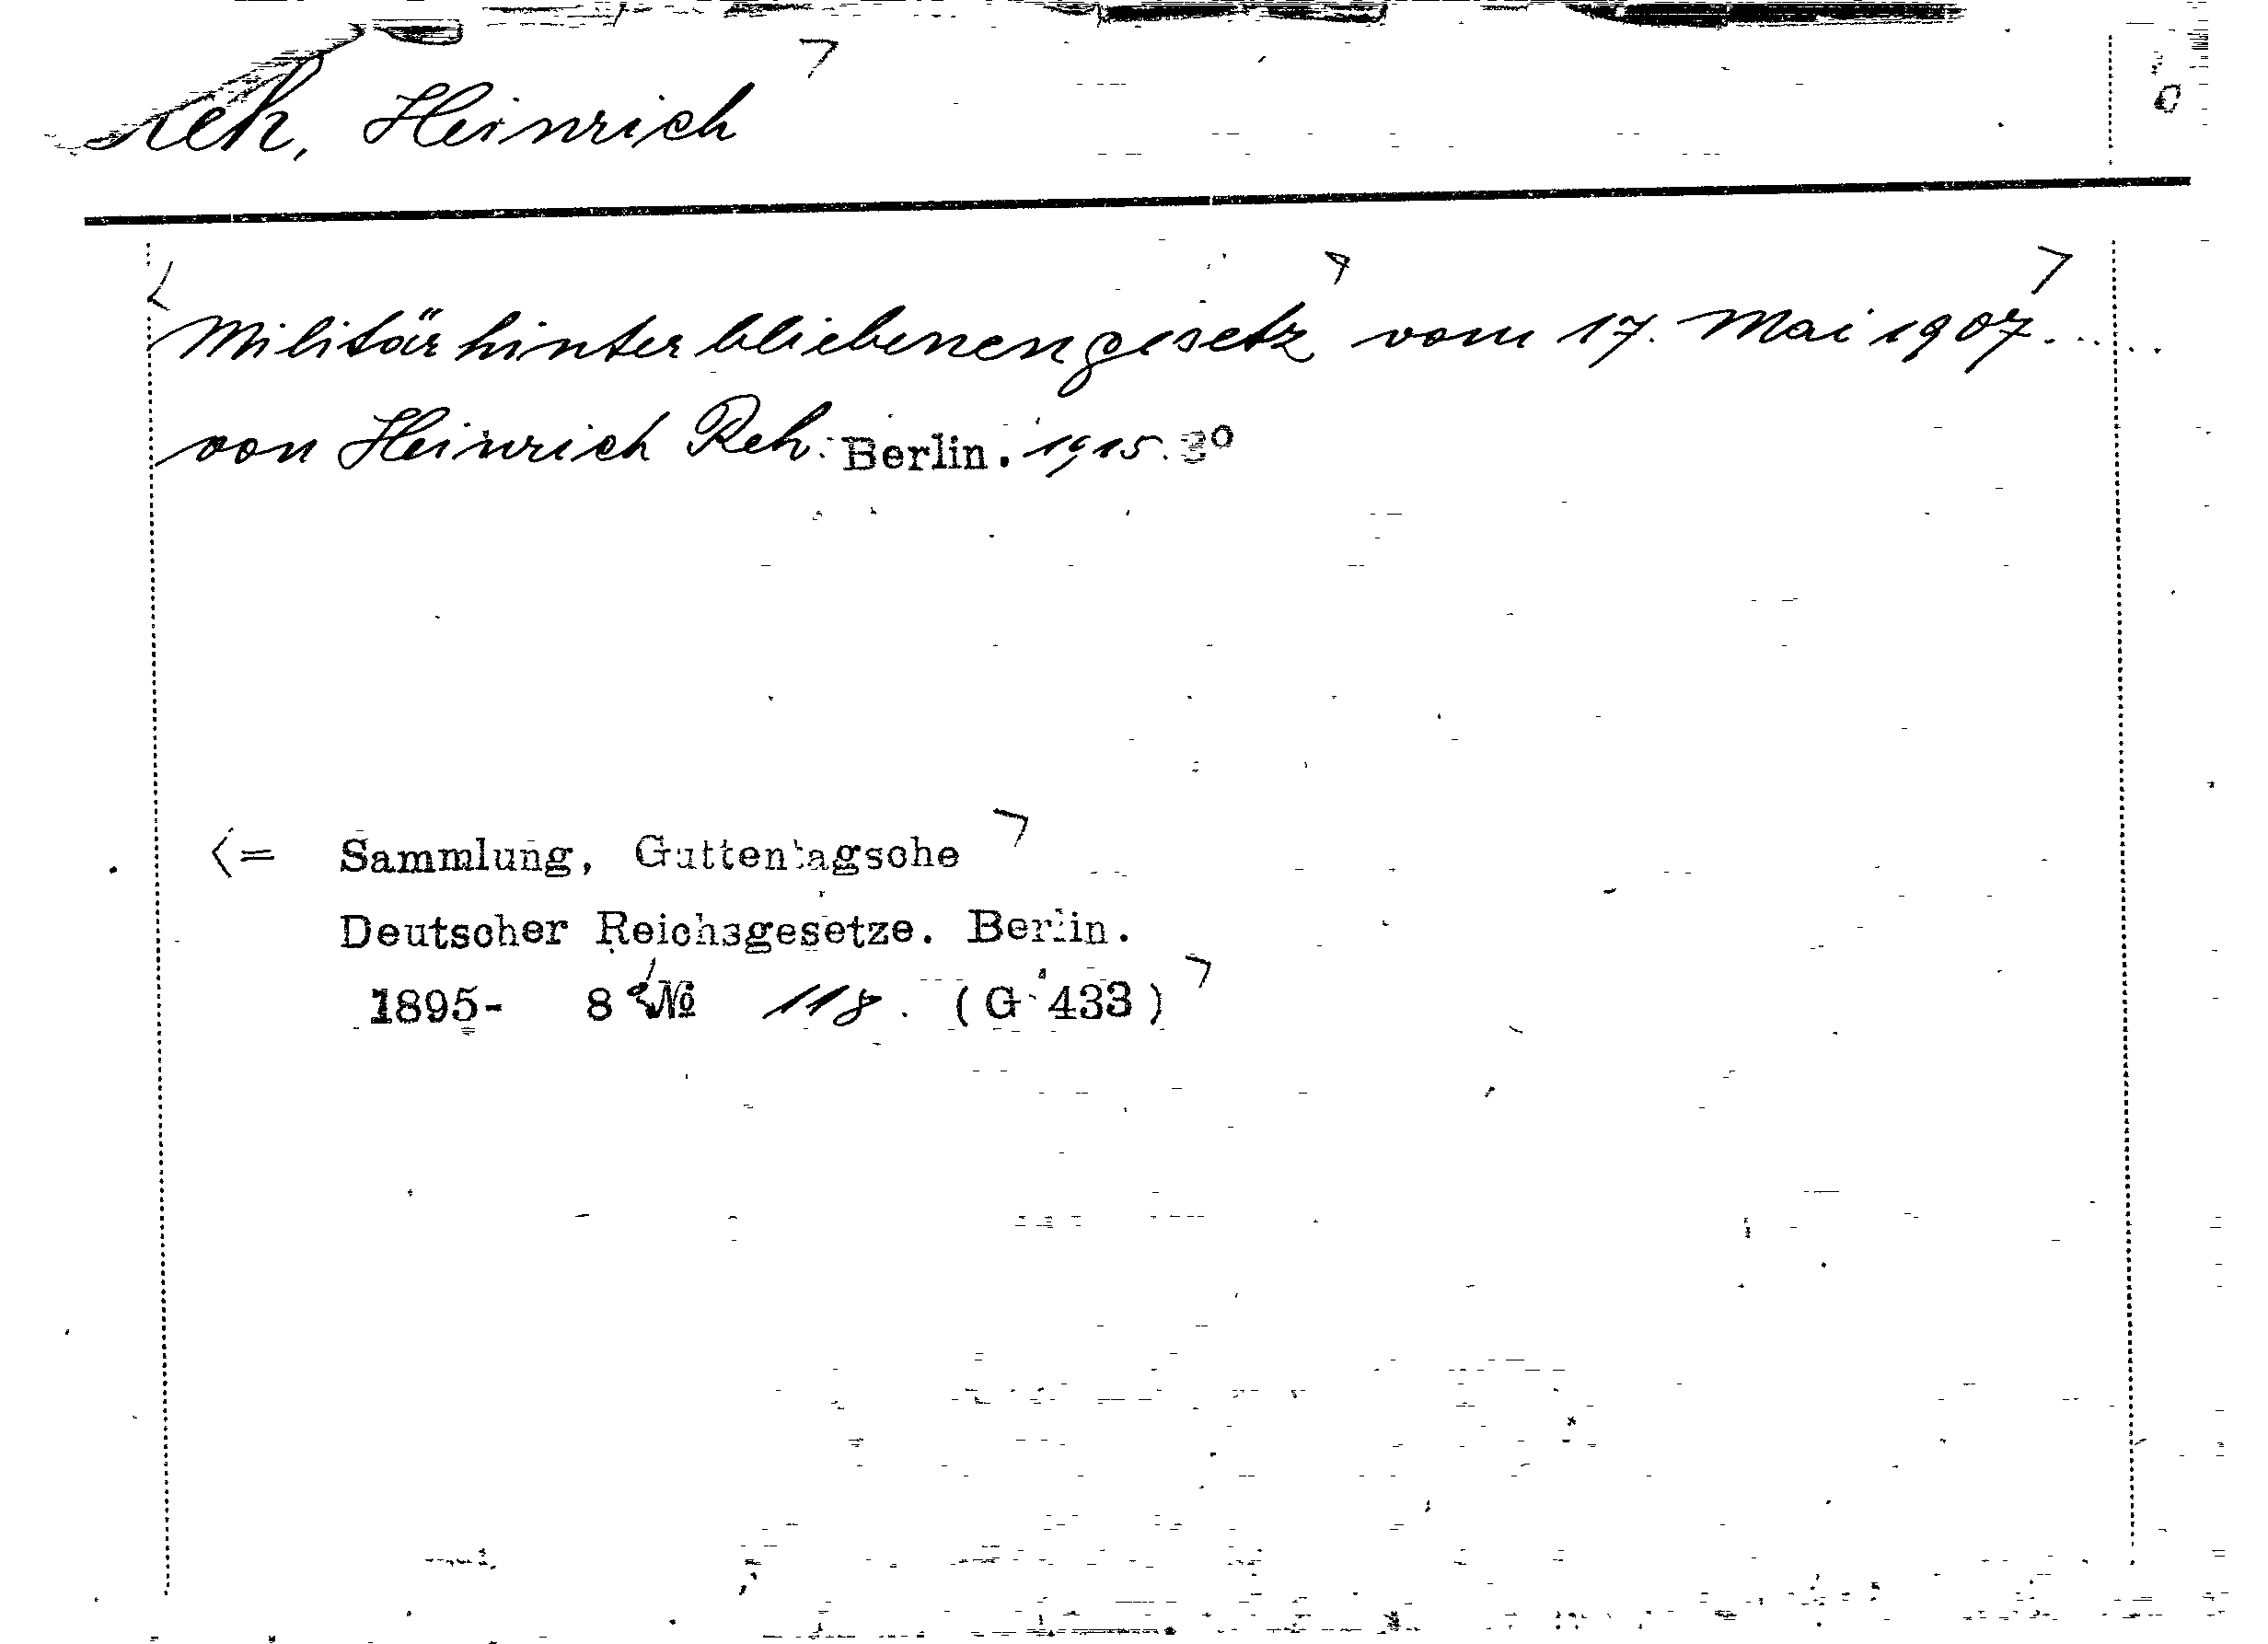 Reh, Heinrich
Militärhinterbliebenengesetz vom 17. Mai 1907.....
von Heinrich Reh. Berlin. 1915. 8°
<= Sammlung, Guttentagsche
Deutscher Reichsgesetze. Berlin.
1895- 8° № 118. (G 433)